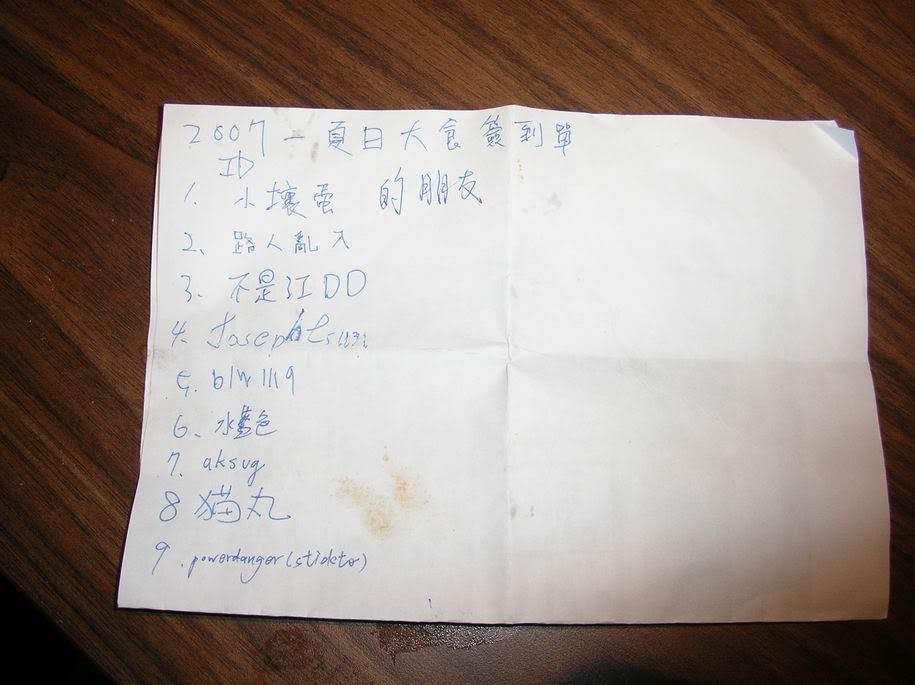 2007 一頁日大食簽到單
ID
1. 小壞蛋 的朋友
2、路人亂入
3、不是江DD
4、Joseph
5、blw1119
6、水藍色
7、aksug
8 貓丸
9.powerdanger(stideto)